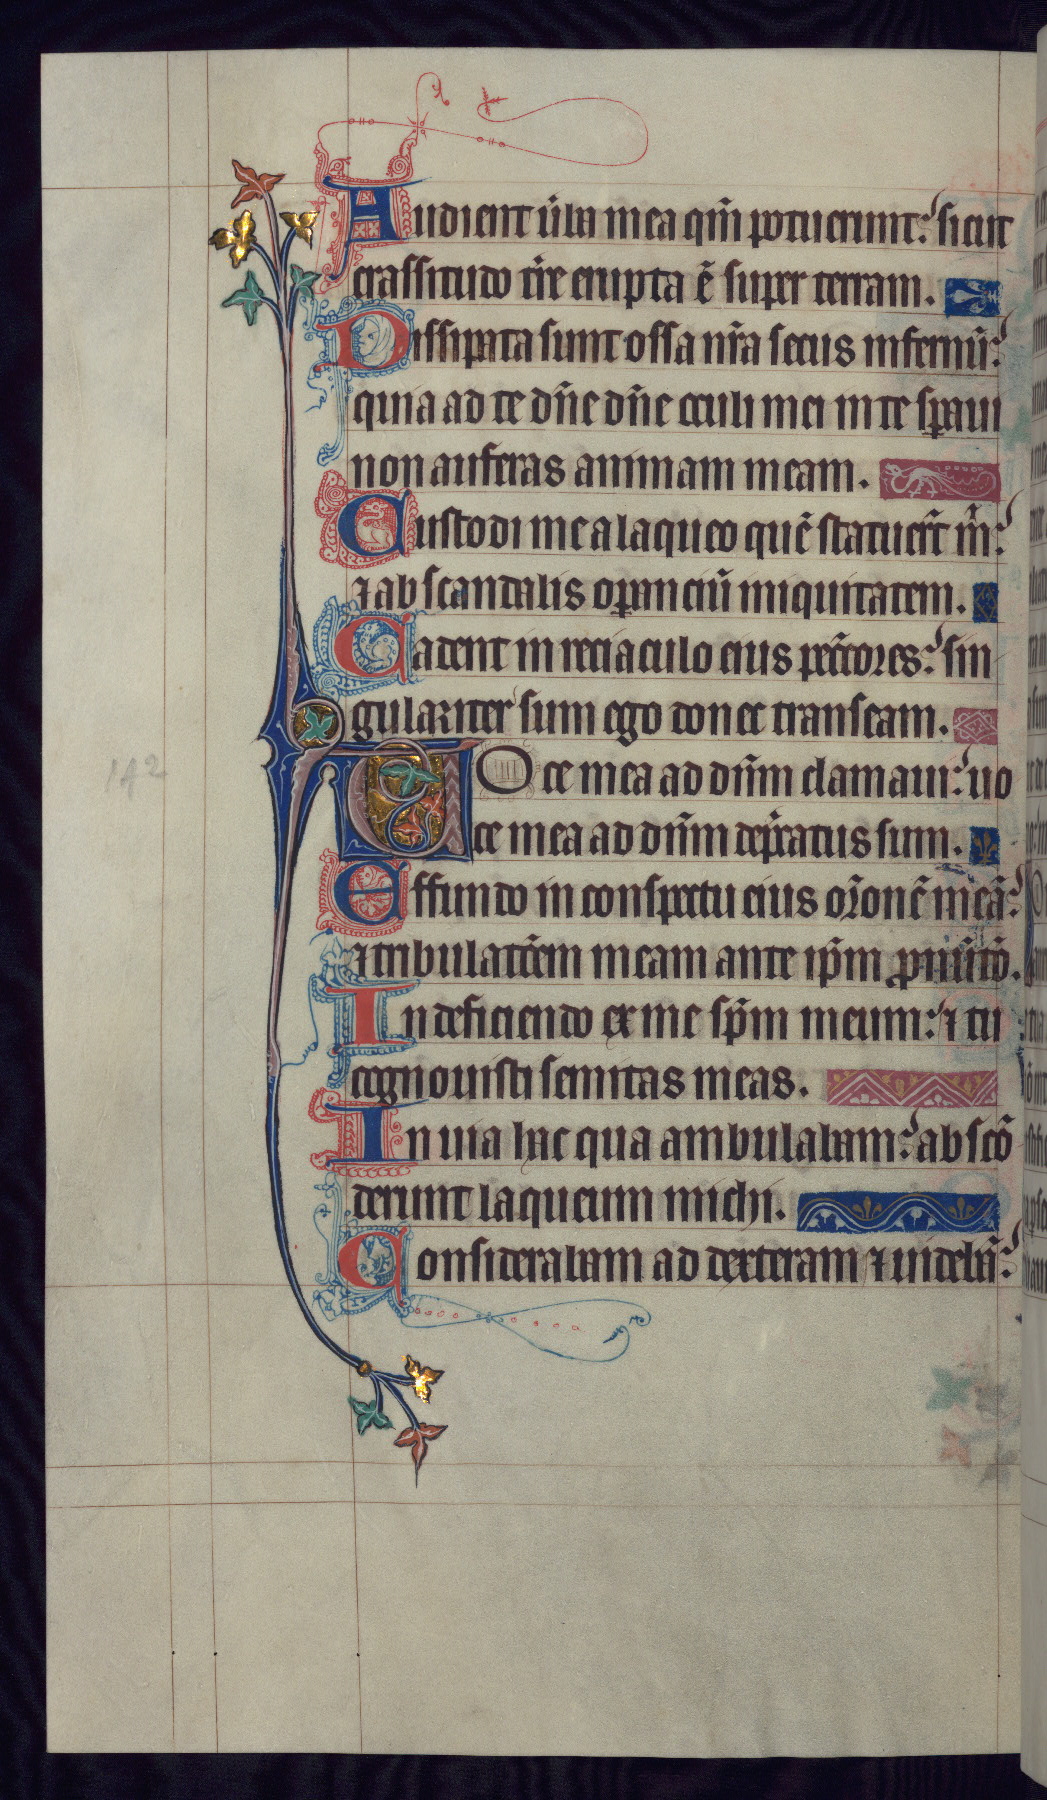 Audient ũba mea qm̃ potuerunt: sicut
crassitudo tr̃e erupta ẽ super terram.
Dissipata sunt ossa nr̃a secus infernũ:
quia ad te dñe dñe oculi mei in te sꝑaui
non auferas animam meam.
Custodi me a laqueo quẽ statuer̃t m̃:
⁊ ab scandalis oꝑanciũ iniquitatem.
Cadent in retiaculo eius pecc̃ores: sin
gulariter sum ego donec transeam.
VOce mea ad dñm clamaui: uo
ce mea ad dñm dep̃catus sum.
Effundo in conspectu eius or̃onẽ meã:
⁊ tribulatc̃em meam ante ip̃m ꝓnũtio.
In deficiendo ex me sp̃m meum: ⁊ tu
cognouisti semitas meas.
In uia hac qua ambulabam: absco
derunt laqueum michi.
Considerabam ad dexteram ⁊ uideb̃:
142